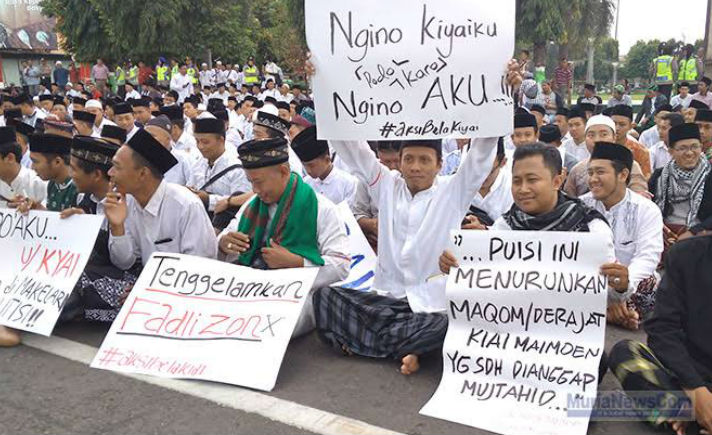 Ngino Kiyaiku
Podo Karo
Ngino AKU...!!
#aksiBelaKiyai
OAKU...
U/ KYAI
di MAKELAR
Tenggelamkan
Fadli zonx
#aksiBelakiai
"... PUISI INI
MENURUNKAN
MAQOM/DERAJAT
KIAI MAIMOEN
YG SDH DIANGGAP
MUJTAHID..."
MuriaNewsCom